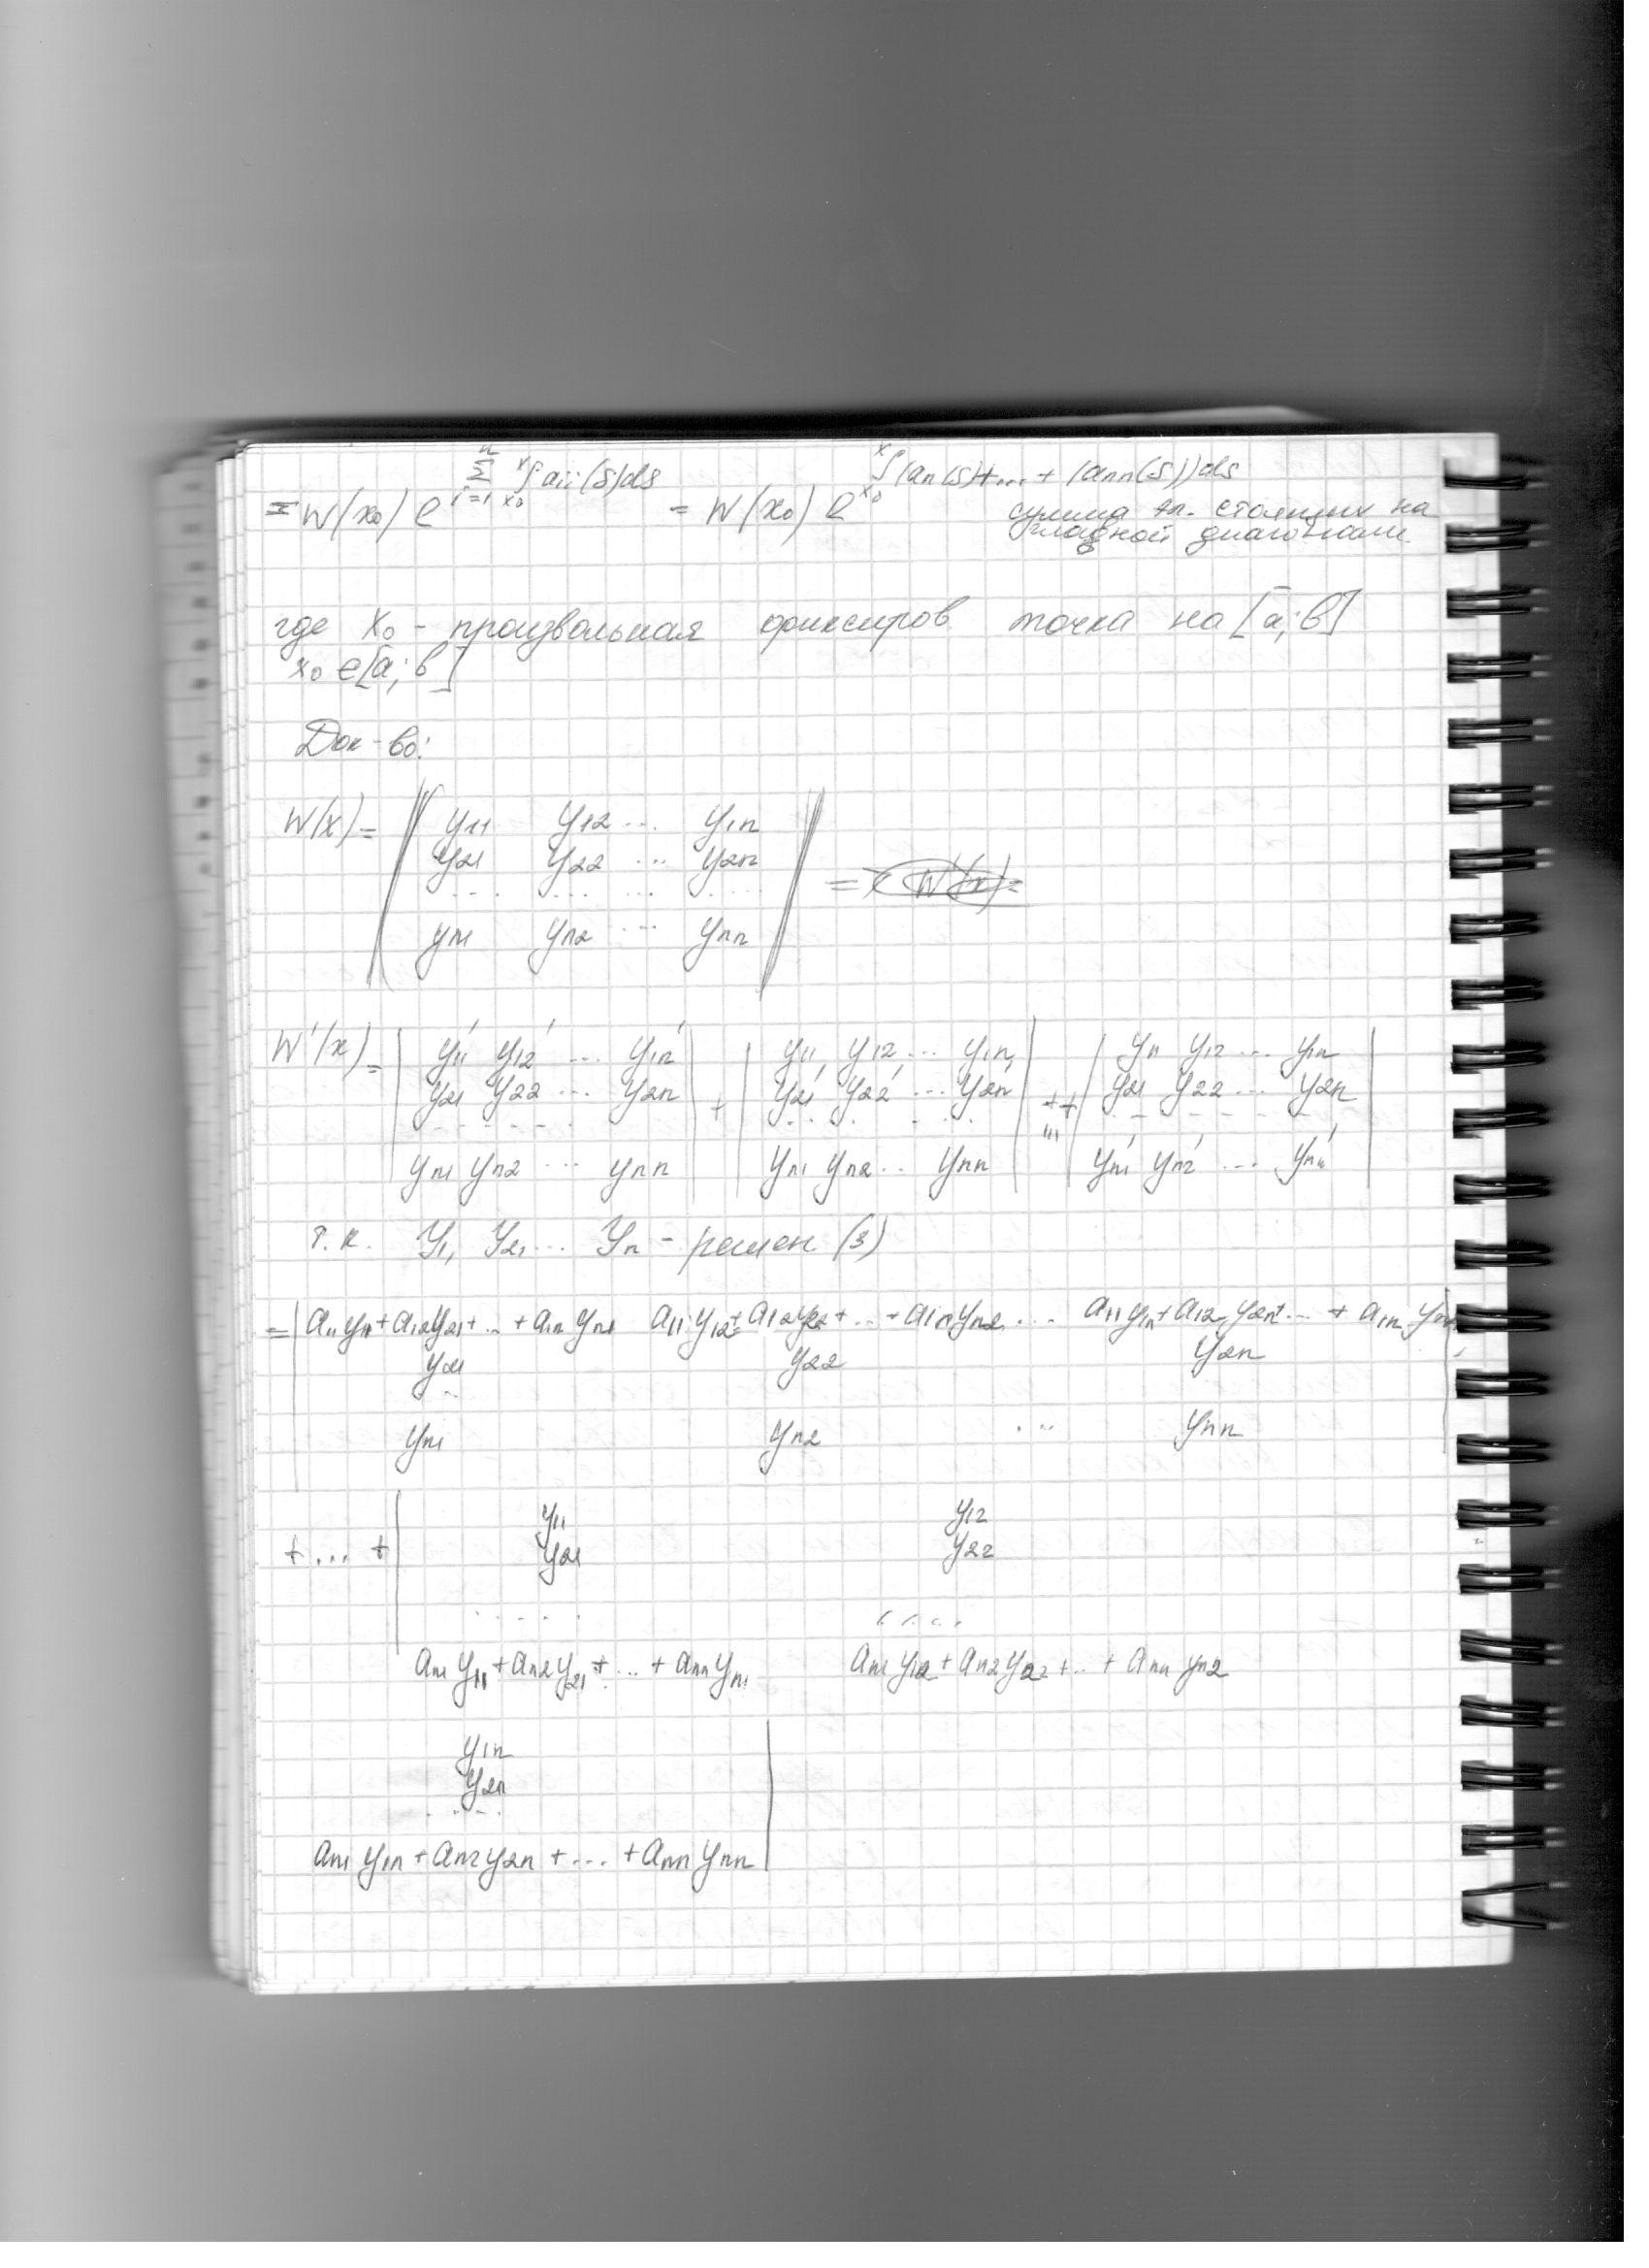 = W(x₀) e^{∑_{i=1}^{n} ∫_{x₀}^{x} aᵢᵢ(s)ds} = W(x₀) e^{∫_{x₀}^{x} (a₁₁(s)+...+(aₙₙ(s))ds}
сумма эл. стоящих на
главной диагонали
где x₀ - произвольная фиксиров точка на [a;b]
x₀ ∈ [a;b]
Док-во:
W(x) = | y₁₁ y₁₂ ... y₁ₙ | =
y₂₁ y₂₂ ... y₂ₙ
.... .... ... ....
yₙ₁ yₙ₂ ... yₙₙ
W'(x) = | y₁₁' y₁₂' ... y₁ₙ' | + | y₁₁ y₁₂ ... y₁ₙ | + ... + | y₁₁ y₁₂ ... y₁ₙ |
y₂₁ y₂₂ ... y₂ₙ y₂₁' y₂₂' ... y₂ₙ' y₂₁ y₂₂ ... y₂ₙ
yₙ₁ yₙ₂ ... yₙₙ yₙ₁ yₙ₂ .. yₙₙ yₙ₁' yₙ₂' ... yₙₙ'
т.к. Y₁, Y₂, ... Yₙ - решен (3)
= | a₁₁y₁₁+a₁₂y₂₁+...+a₁ₙyₙ₁ a₁₁y₁₂+a₁₂y₂₂+...+a₁ₙyₙ₂ ... a₁₁y₁ₙ+a₁₂y₂ₙ+...+a₁ₙyₙₙ |
y₂₁ y₂₂ y₂ₙ
..
yₙ₁ yₙ₂ ... yₙₙ
y₁₁ y₁₂
+ ... + | y₂₁ y₂₂
..... ....
aₙ₁y₁₁+aₙ₂y₂₁+...+aₙₙyₙ₁ aₙ₁y₁₂+aₙ₂y₂₂+...+aₙₙyₙ₂
y₁ₙ |
y₂ₙ
.....
aₙ₁y₁ₙ+aₙ₂y₂ₙ+...+aₙₙyₙₙ |